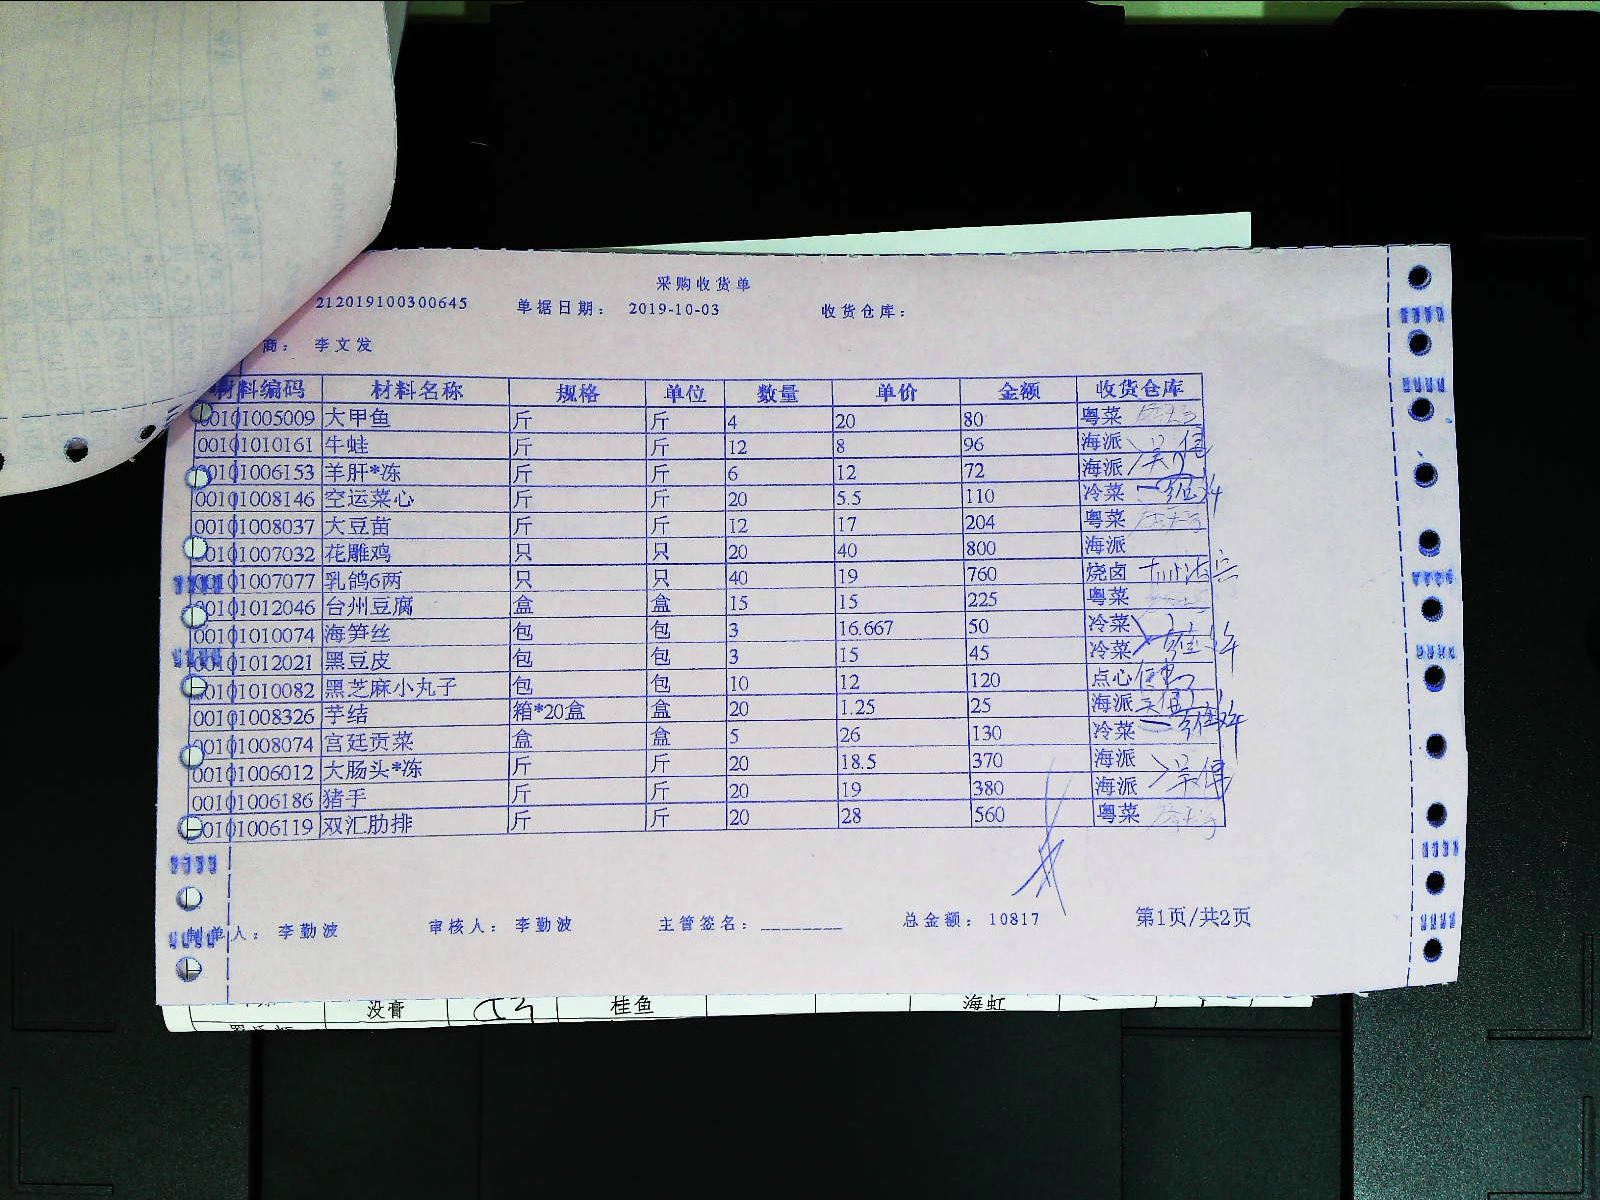 采购收货单
212019100300645 单据日期： 2019-10-03 收货仓库：
商： 李文发
材料编码 材料名称 规格 单位 数量 单价 金额 收货仓库
00101005009 大甲鱼 斤 斤 4 20 80 粤菜
00101010161 牛蛙 斤 斤 12 8 96 海派
00101006153 羊肝*冻 斤 斤 6 12 72 海派
00101008146 空运菜心 斤 斤 20 5.5 110 冷菜
00101008037 大豆苗 斤 斤 12 17 204 粤菜
00101007032 花雕鸡 只 只 20 40 800 海派
00101007077 乳鸽6两 只 只 40 19 760 烧卤
00101012046 台州豆腐 盒 盒 15 15 225 粤菜
00101010074 海笋丝 包 包 3 16.667 50 冷菜
00101012021 黑豆皮 包 包 3 15 45 冷菜
00101010082 黑芝麻小丸子 包 包 10 12 120 点心
00101008326 芋结 箱*20盒 盒 20 1.25 25 海派
00101008074 宫廷贡菜 盒 盒 5 26 130 冷菜
00101006012 大肠头*冻 斤 斤 20 18.5 370 海派
00101006186 猪手 斤 斤 20 19 380 海派
00101006119 双汇肋排 斤 斤 20 28 560 粤菜
制单人： 李勤波 审核人： 李勤波 主管签名：________ 总金额： 10817 第1页/共2页
没膏 桂鱼 海虹